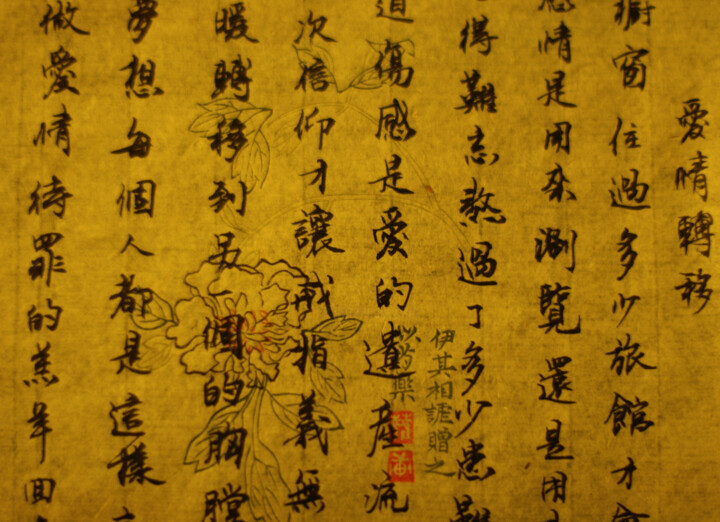 愛情轉移
櫥窗住過多少旅館才
感情是用來涮覽還是用
得難忘熬過了多少患難
道傷感是愛的遺產流
次信仰才讓戒指義無
暖轉移到另一個的胸膛
夢想每個人都是這樣
做愛情待罪的羔羊回
伊其相謔贈之
以芍藥